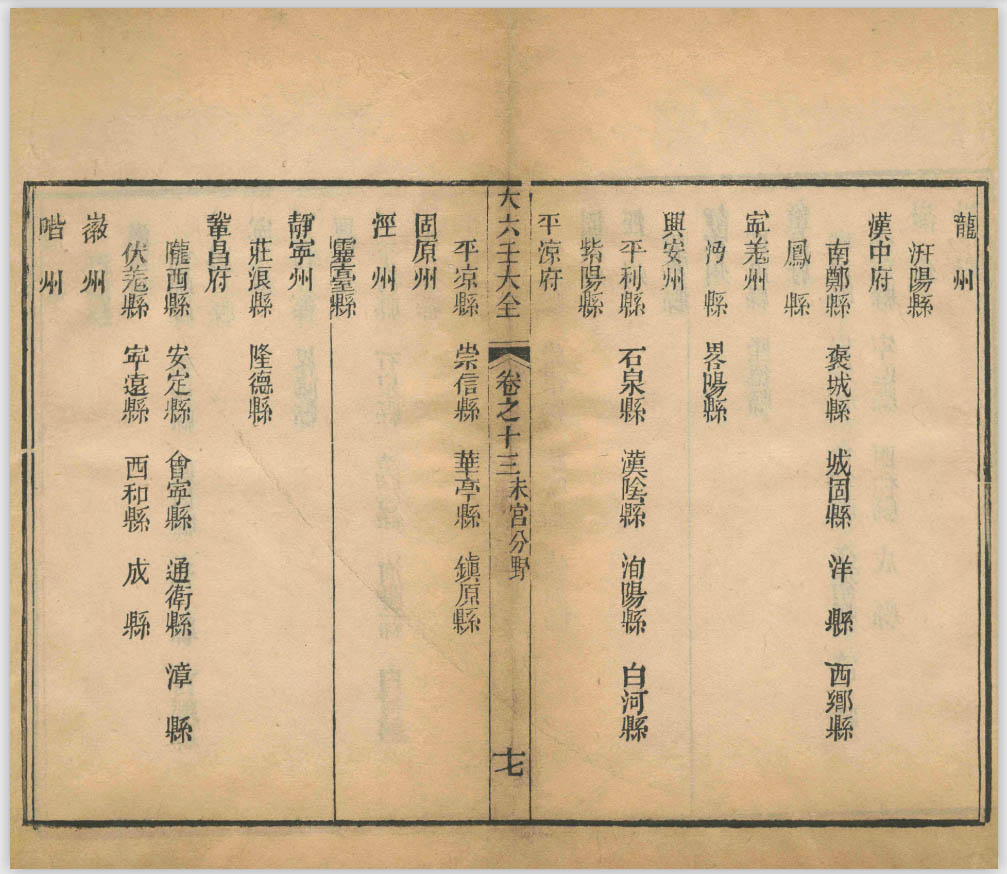 龍州
汧陽縣
漢中府
南鄭縣 褒城縣 城固縣 洋縣 西鄉縣
鳳縣
寧羌州
沔縣 畧陽縣
興安州
平利縣 石泉縣 漢陰縣 洵陽縣 白河縣
紫陽縣
平凉府
大六壬大全 卷之十三 未宮分野 十七
平凉縣 崇信縣 華亭縣 鎮原縣
固原州
涇州
靈臺縣
靜寧州
莊浪縣 隆德縣
鞏昌府
隴西縣 安定縣 會寧縣 通衛縣 漳縣
伏羌縣 寧遠縣 西和縣 成縣
徽州
階州